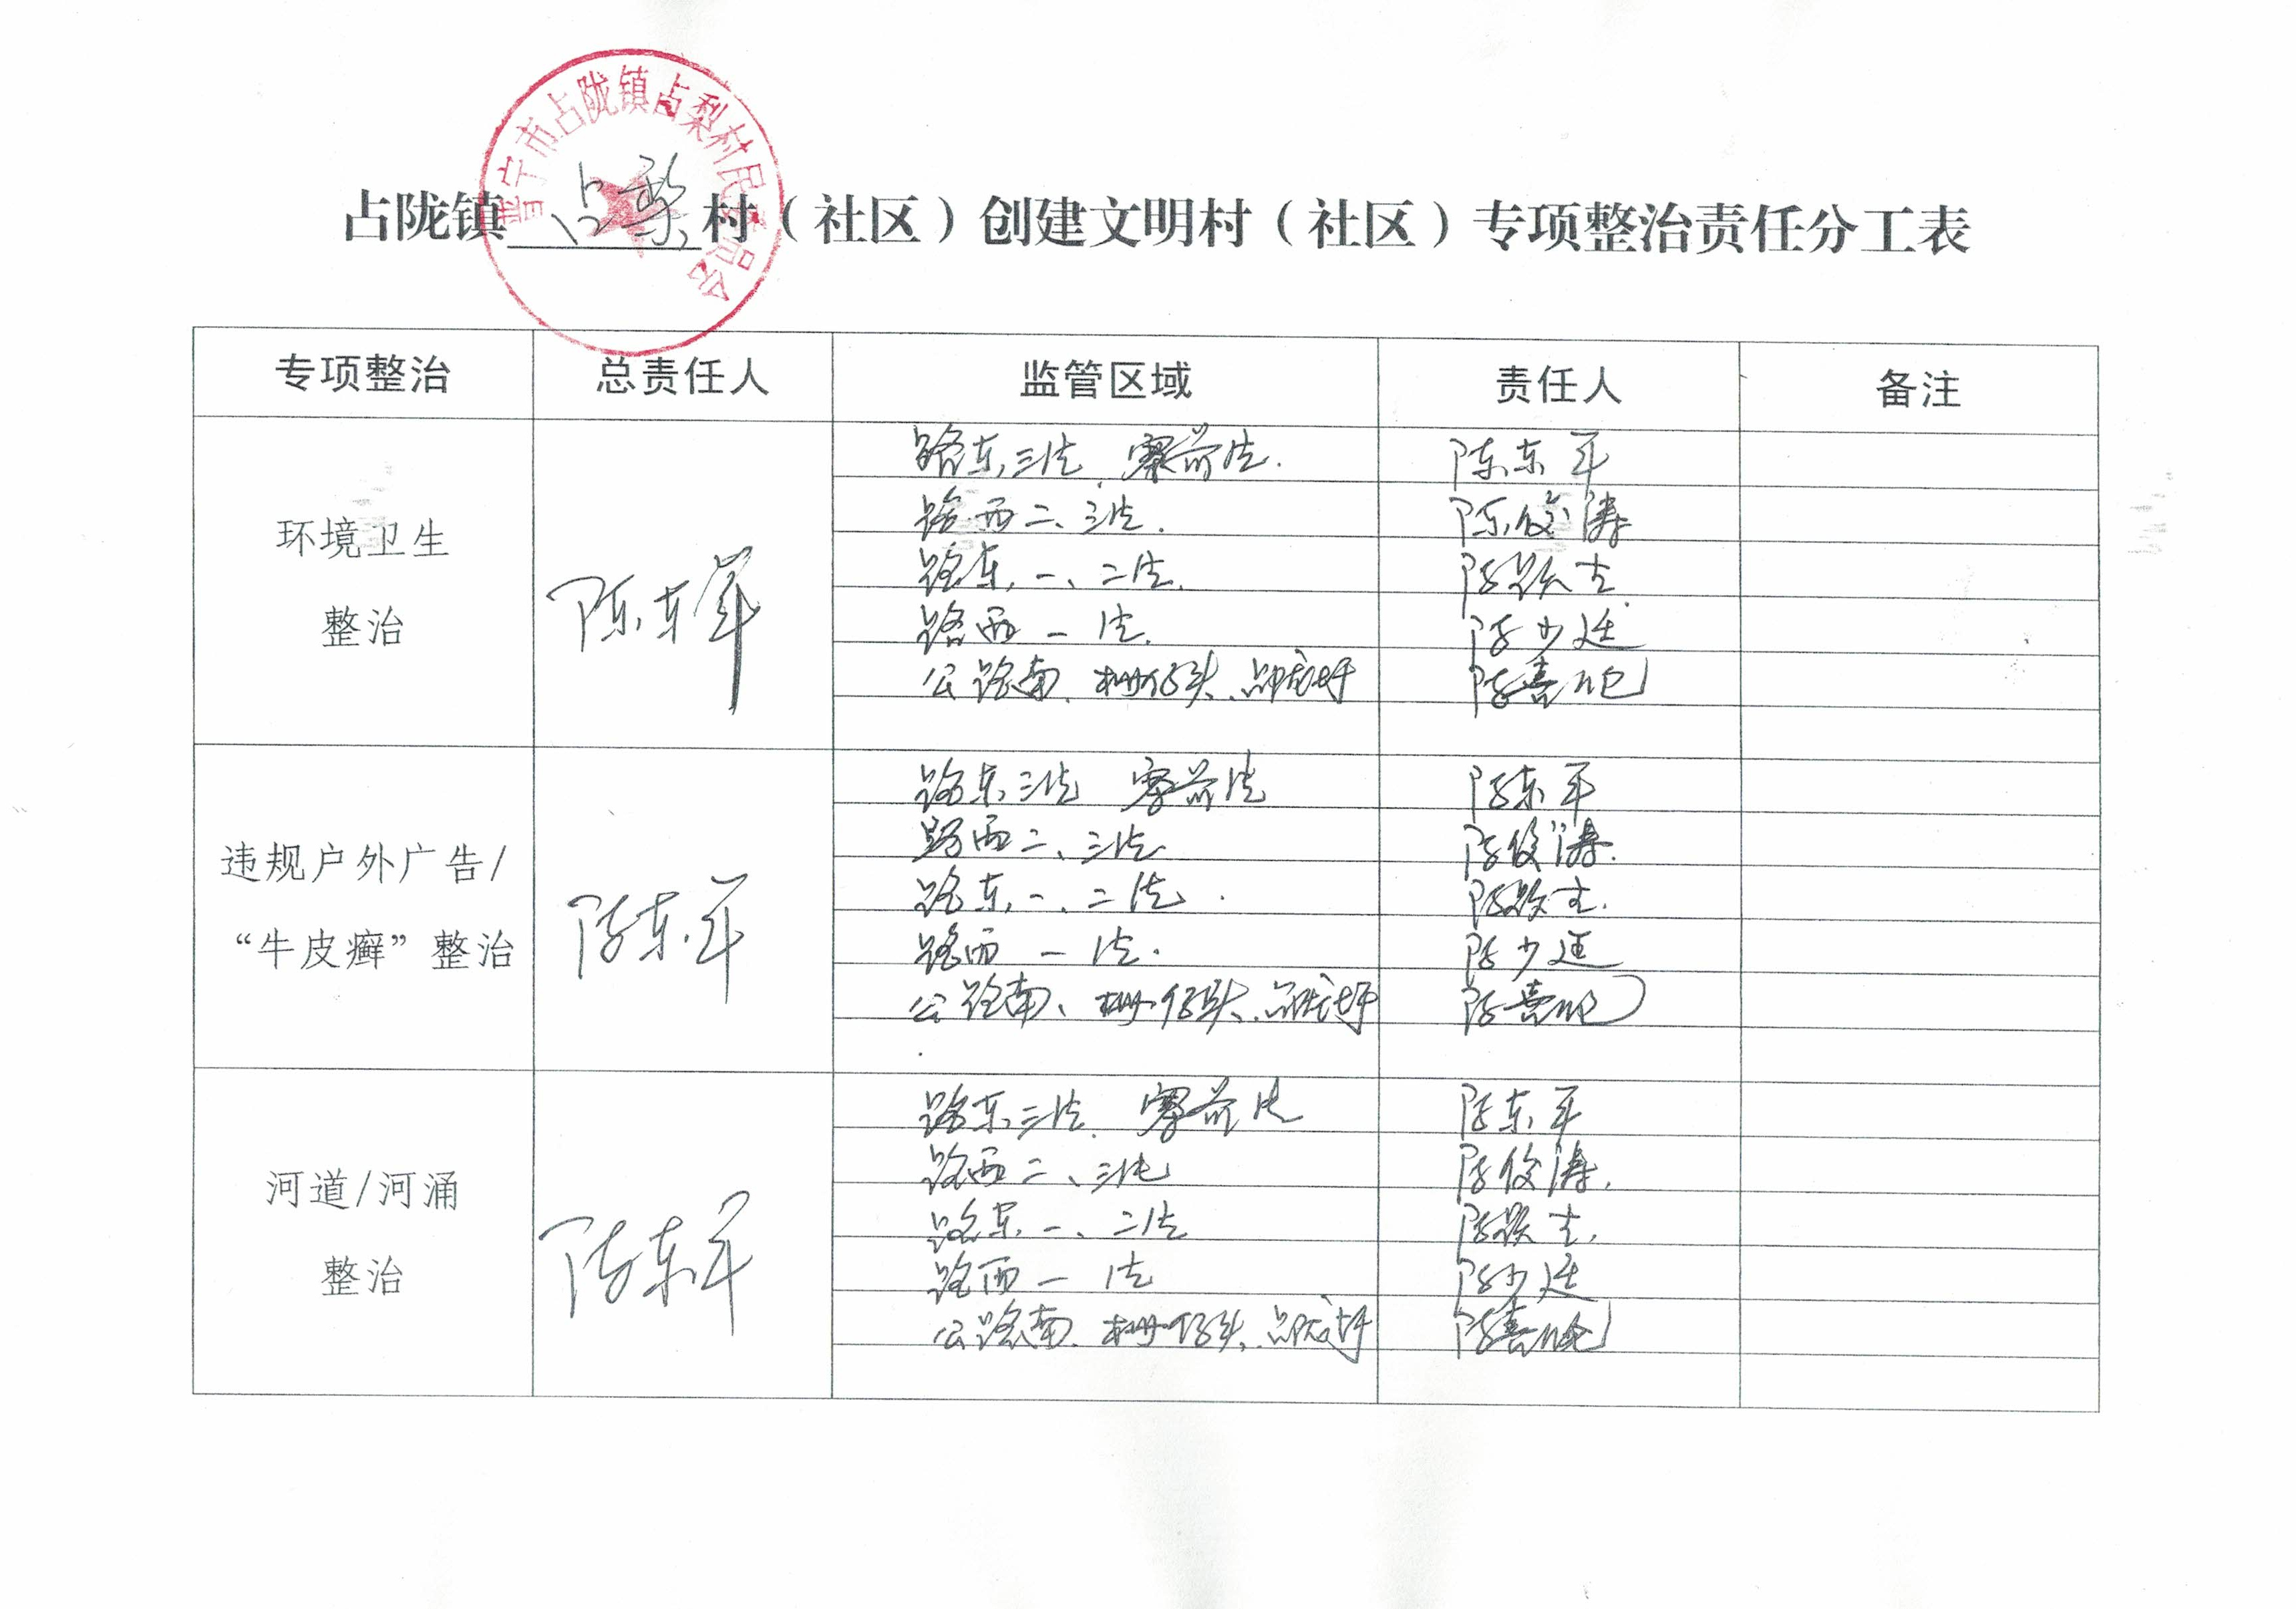 普宁市占陇镇占梨村民委员会
占陇镇占梨村（社区）创建文明村（社区）专项整治责任分工表
专项整治 总责任人 监管区域 责任人 备注
环境卫生
整治
陈东军
路东三片、寨前片. 陈东平
路西二、三片. 陈俊涛
路东一、二片. 陈
路西一片. 陈少廷
公路南、栅仔头、 陈喜
违规户外广告/
“牛皮癣”整治
陈东平
路东三片 寨前片 陈东平
路西二、三片 陈俊涛.
路东一、二片. 陈
路西一片. 陈少廷
公路南、栅仔头、 陈喜
河道/河涌
整治
陈东平
路东三片、寨前片 陈东平
路西二、三片 陈俊涛.
路东一、二片 陈
路西一片 陈少廷
公路南、栅仔头、 陈喜